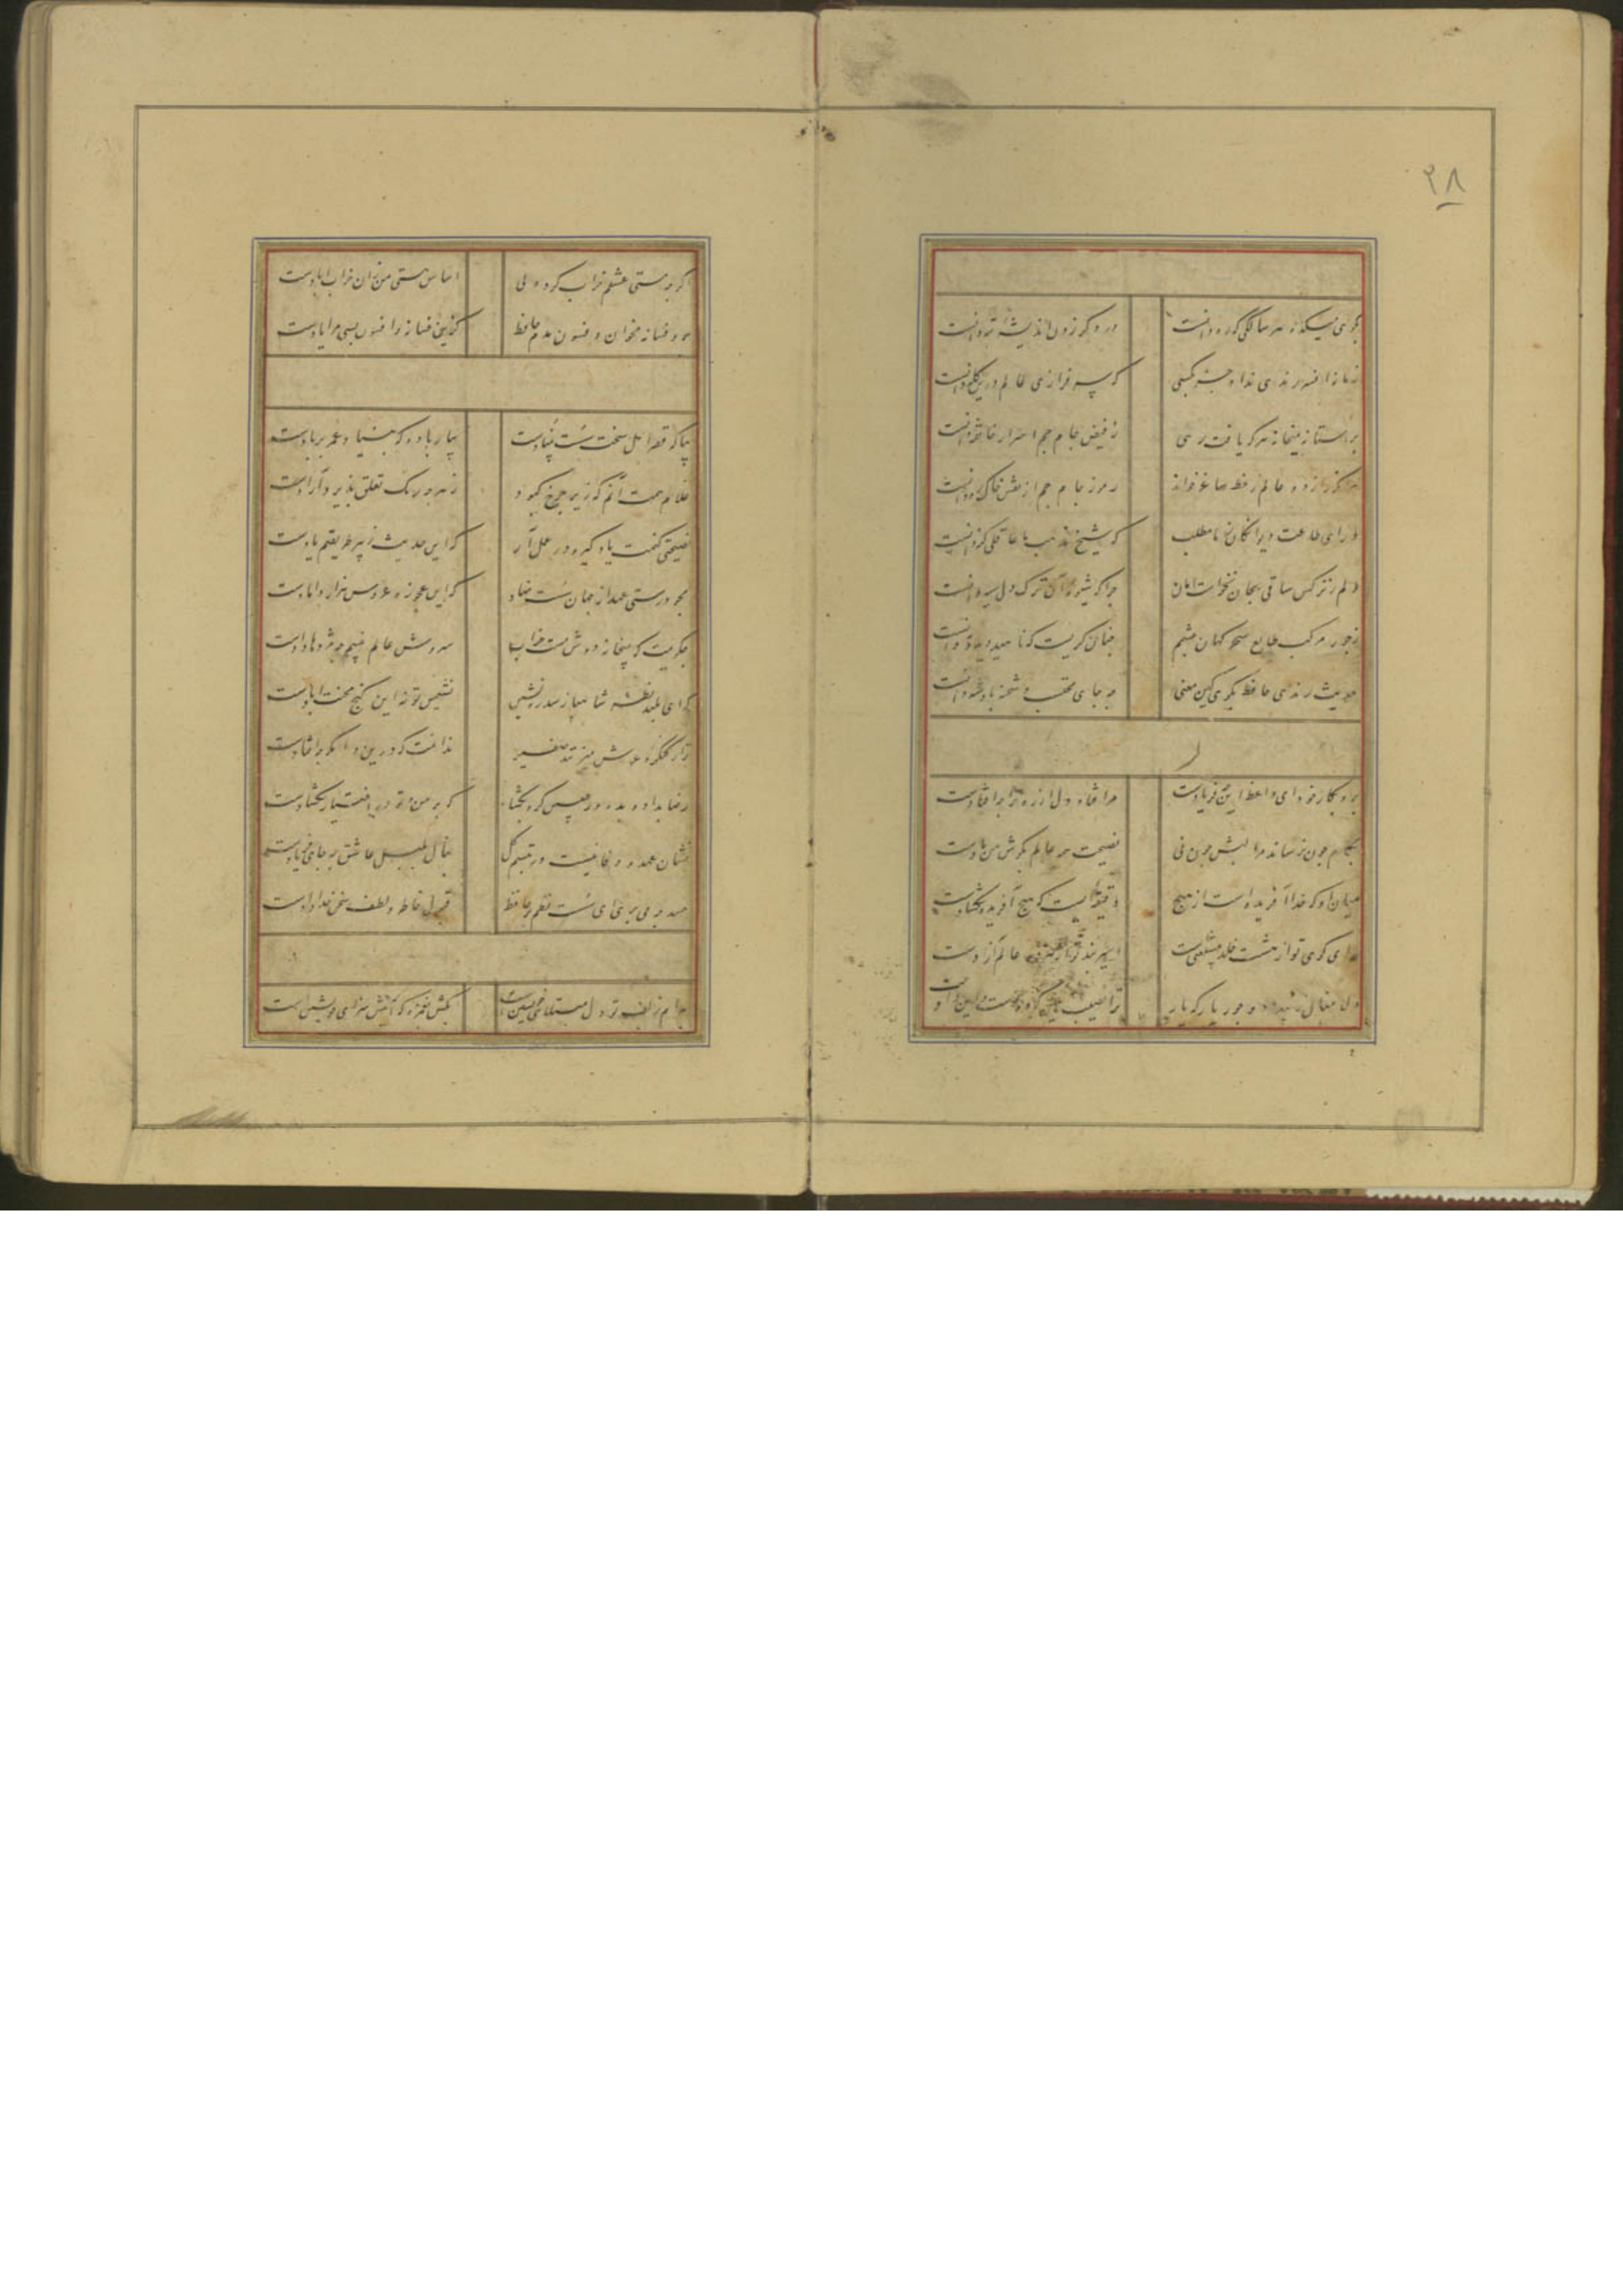 ۲۸
بکوی میکده هر سالکی که ره دانست
در دگر زدن اندیشهٔ تبه دانست
زمانه افسر رندی نداد جز بکسی
که سرفرازی عالم درین کله دانست
بر آستانهٔ میخانه هر که یافت رهی
ز فیض جام جم اسرار خانقه دانست
هر آنکه راز دو عالم ز خط ساغر خواند
رموز جام جم از نقش خاک ره دانست
ورای طاعت دیوانگان ز ما مطلب
که شیخ مذهب ما عاقلی گنه دانست
دلم ز نرگس ساقی بجان نخواست امان
چرا که شیوهٔ آن ترک دل سیه دانست
ز جور کوکب طالع سحرگهان چشمم
چنان گریست که ناهید دید و مه دانست
حدیث رندی حافظ نگویی کین معنی
چه جای محتسب و شحنه پادشه دانست
برو بکار خود ای واعظ این چه فریادست
مرا فتاد دل از ره ترا چه افتادست
بکام چون نرساند مرا لبش چون نی
نصیحت همه عالم بگوش من بادست
میان او که خدا آفریده است از هیچ
دقیقه‌ایست که هیچ آفریده نگشادست
گدای کوی تو از هشت خلد مستغنیست
اسیر بند تو از هر دو عالم آزادست
دلا منال ز بیداد و جور یار که یار
ترا نصیب همین کرده است و این دادست
اگر چه مستی عشقم خراب کرد ولی
اساس هستی من زان خراب آبادست
برو فسانه مخوان و فسون مدم حافظ
کزین فسانه و افسون بسی مرا یادست
بیا که قصر امل سخت سست بنیادست
بیار باده که بنیاد عمر بر بادست
غلام همت آنم که زیر چرخ کبود
ز هر چه رنگ تعلق پذیرد آزادست
نصیحتی کنمت یاد گیر و در عمل آر
که این حدیث ز پیر طریقتم یادست
مجو درستی عهد از جهان سست نهاد
که این عجوزه عروس هزار دامادست
چگویمت که بمیخانه دوش مست خراب
سروش عالم غیبم چه مژدها دادست
که ای بلند نظر شاهباز سدره نشین
نشیمن تو نه این کنج محنت آبادست
ترا ز کنگرهٔ عرش میزنند صفیر
ندانمت که درین دامگه چه افتادست
رضا بداده بده وز جبین گره بگشا
که بر من و تو در اختیار نگشادست
نشان عهد و وفا نیست در تبسم گل
بنال بلبل عاشق که جای فریادست
حسد چه می بری ای سست نظم بر حافظ
قبول خاطر و لطف سخن خدادادست
بدام زلف تو دل مبتلای خویشتن است
بکش بغمزه که آتش سزای خویشتن است